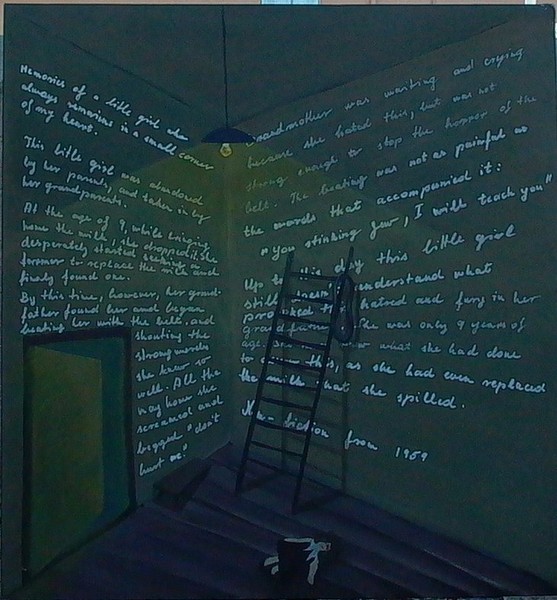 Memories of a little girl who
always remains in a small corner
of my heart.
This little girl was abandoned
by her parents, and taken in by
her grandparents.
At the age of 9, while bringing
home the milk, she dropped it. She
desperately started seeking and
farmer to replace the milk and
finaly found one.
By this time, however, her grand-
father found her and began
beating her with the belt, and
shouting the
strong words
she knew so
well. All the
way home she
screamed and
begged "don't
hurt me."
Grandmother was waiting and crying
because she hated this, but was not
strong enough to stop the horror of the
belt. The beating was not as painful as
the words that accompanied it:
"you stinking jew, I will teach you"
Up to this day this little girl
still understand what
hatred and fury in her
grandfather. She was only 9 years of
age. what she had done
to this, as she had even replaced
the milk that she spilled.
Non-fiction from 1959